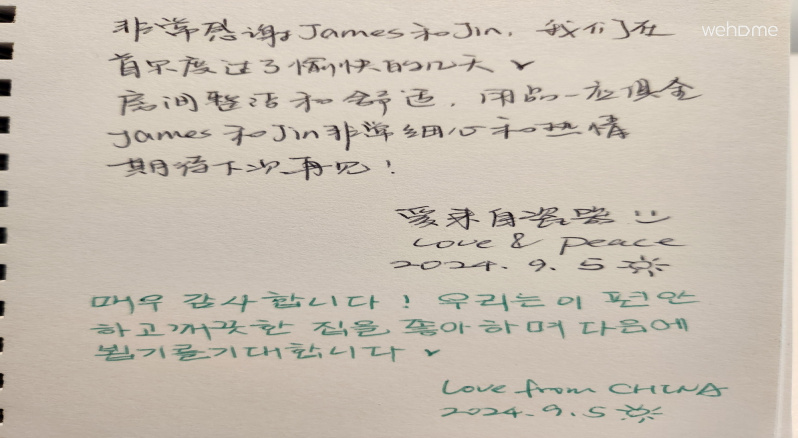 wehome
非常感谢James和Jin，我们在
首尔度过了愉快的几天♥
房间整洁和舒适，用品一应俱全
James和Jin非常细心和热情
期待下次再见！
爱来自瓷器 :)
Love & Peace
2024.9.5
매우 감사합니다! 우리는 이 편안
하고 깨끗한 집을 좋아하며 다음에
뵙기를 기대합니다 ♥
Love from CHINA
2024.9.5